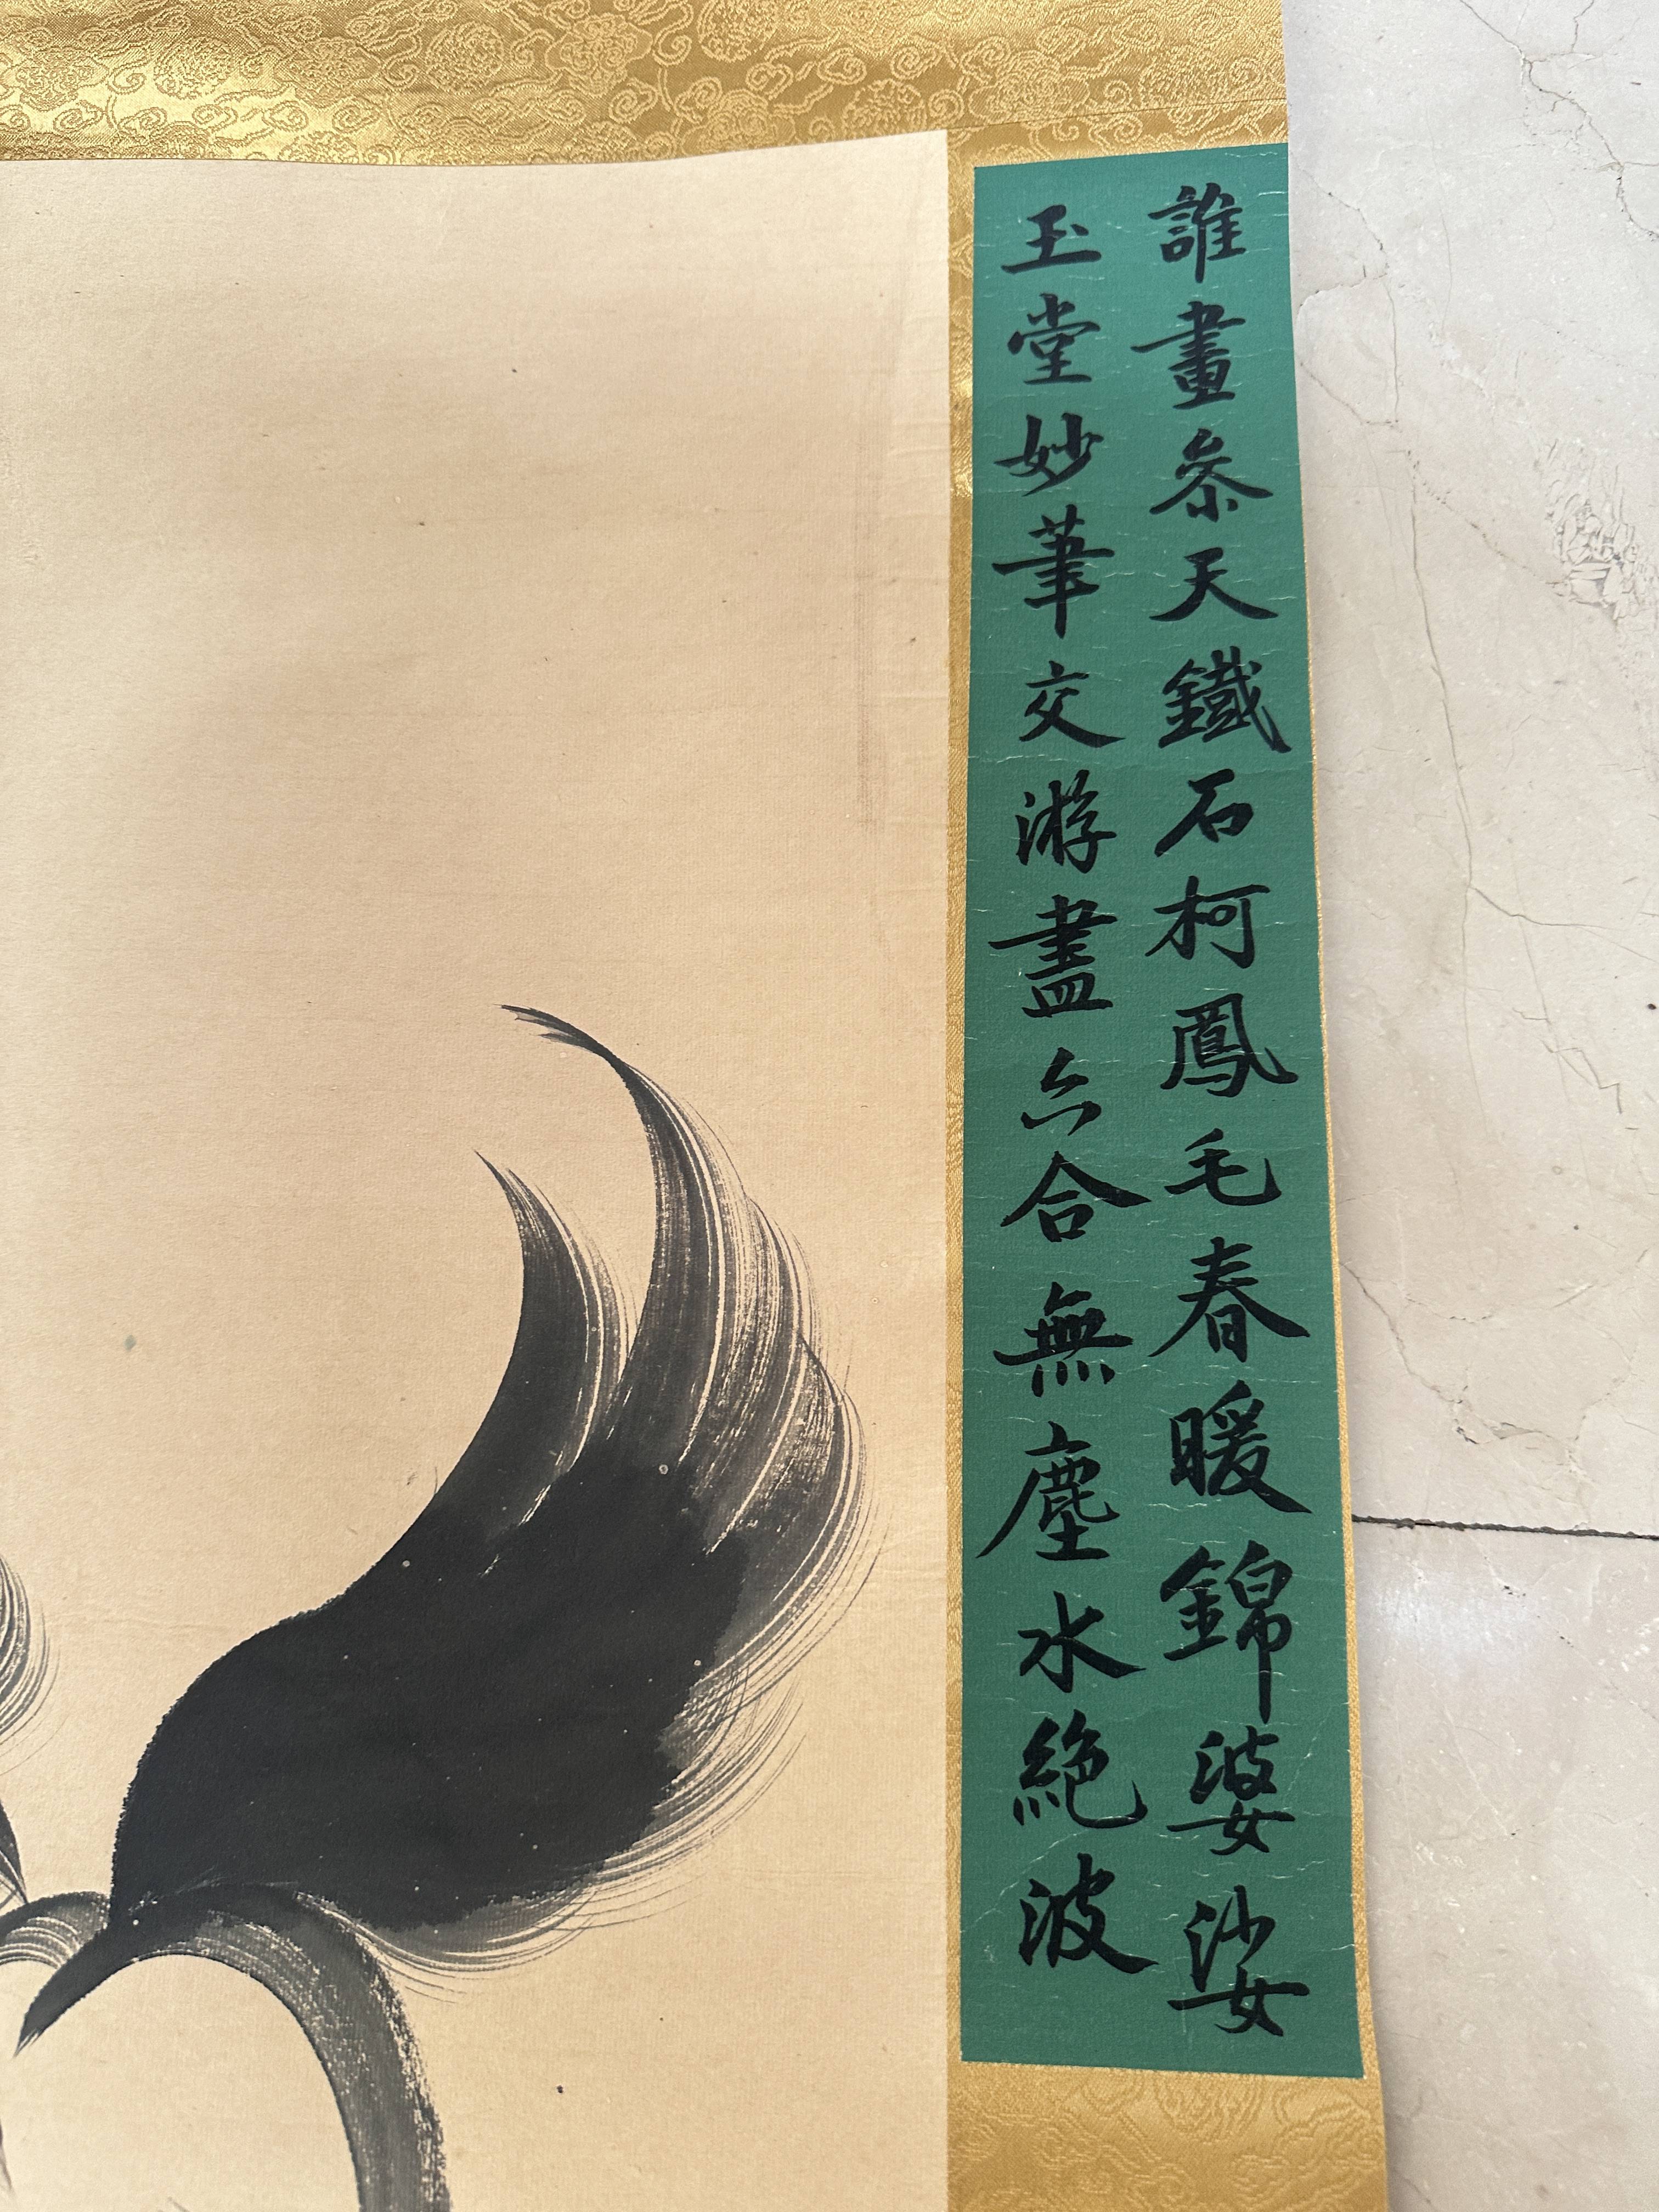 誰畫叅天鐵石柯鳳毛春暖錦婆娑
玉堂妙筆交游盡六合無塵水絕波